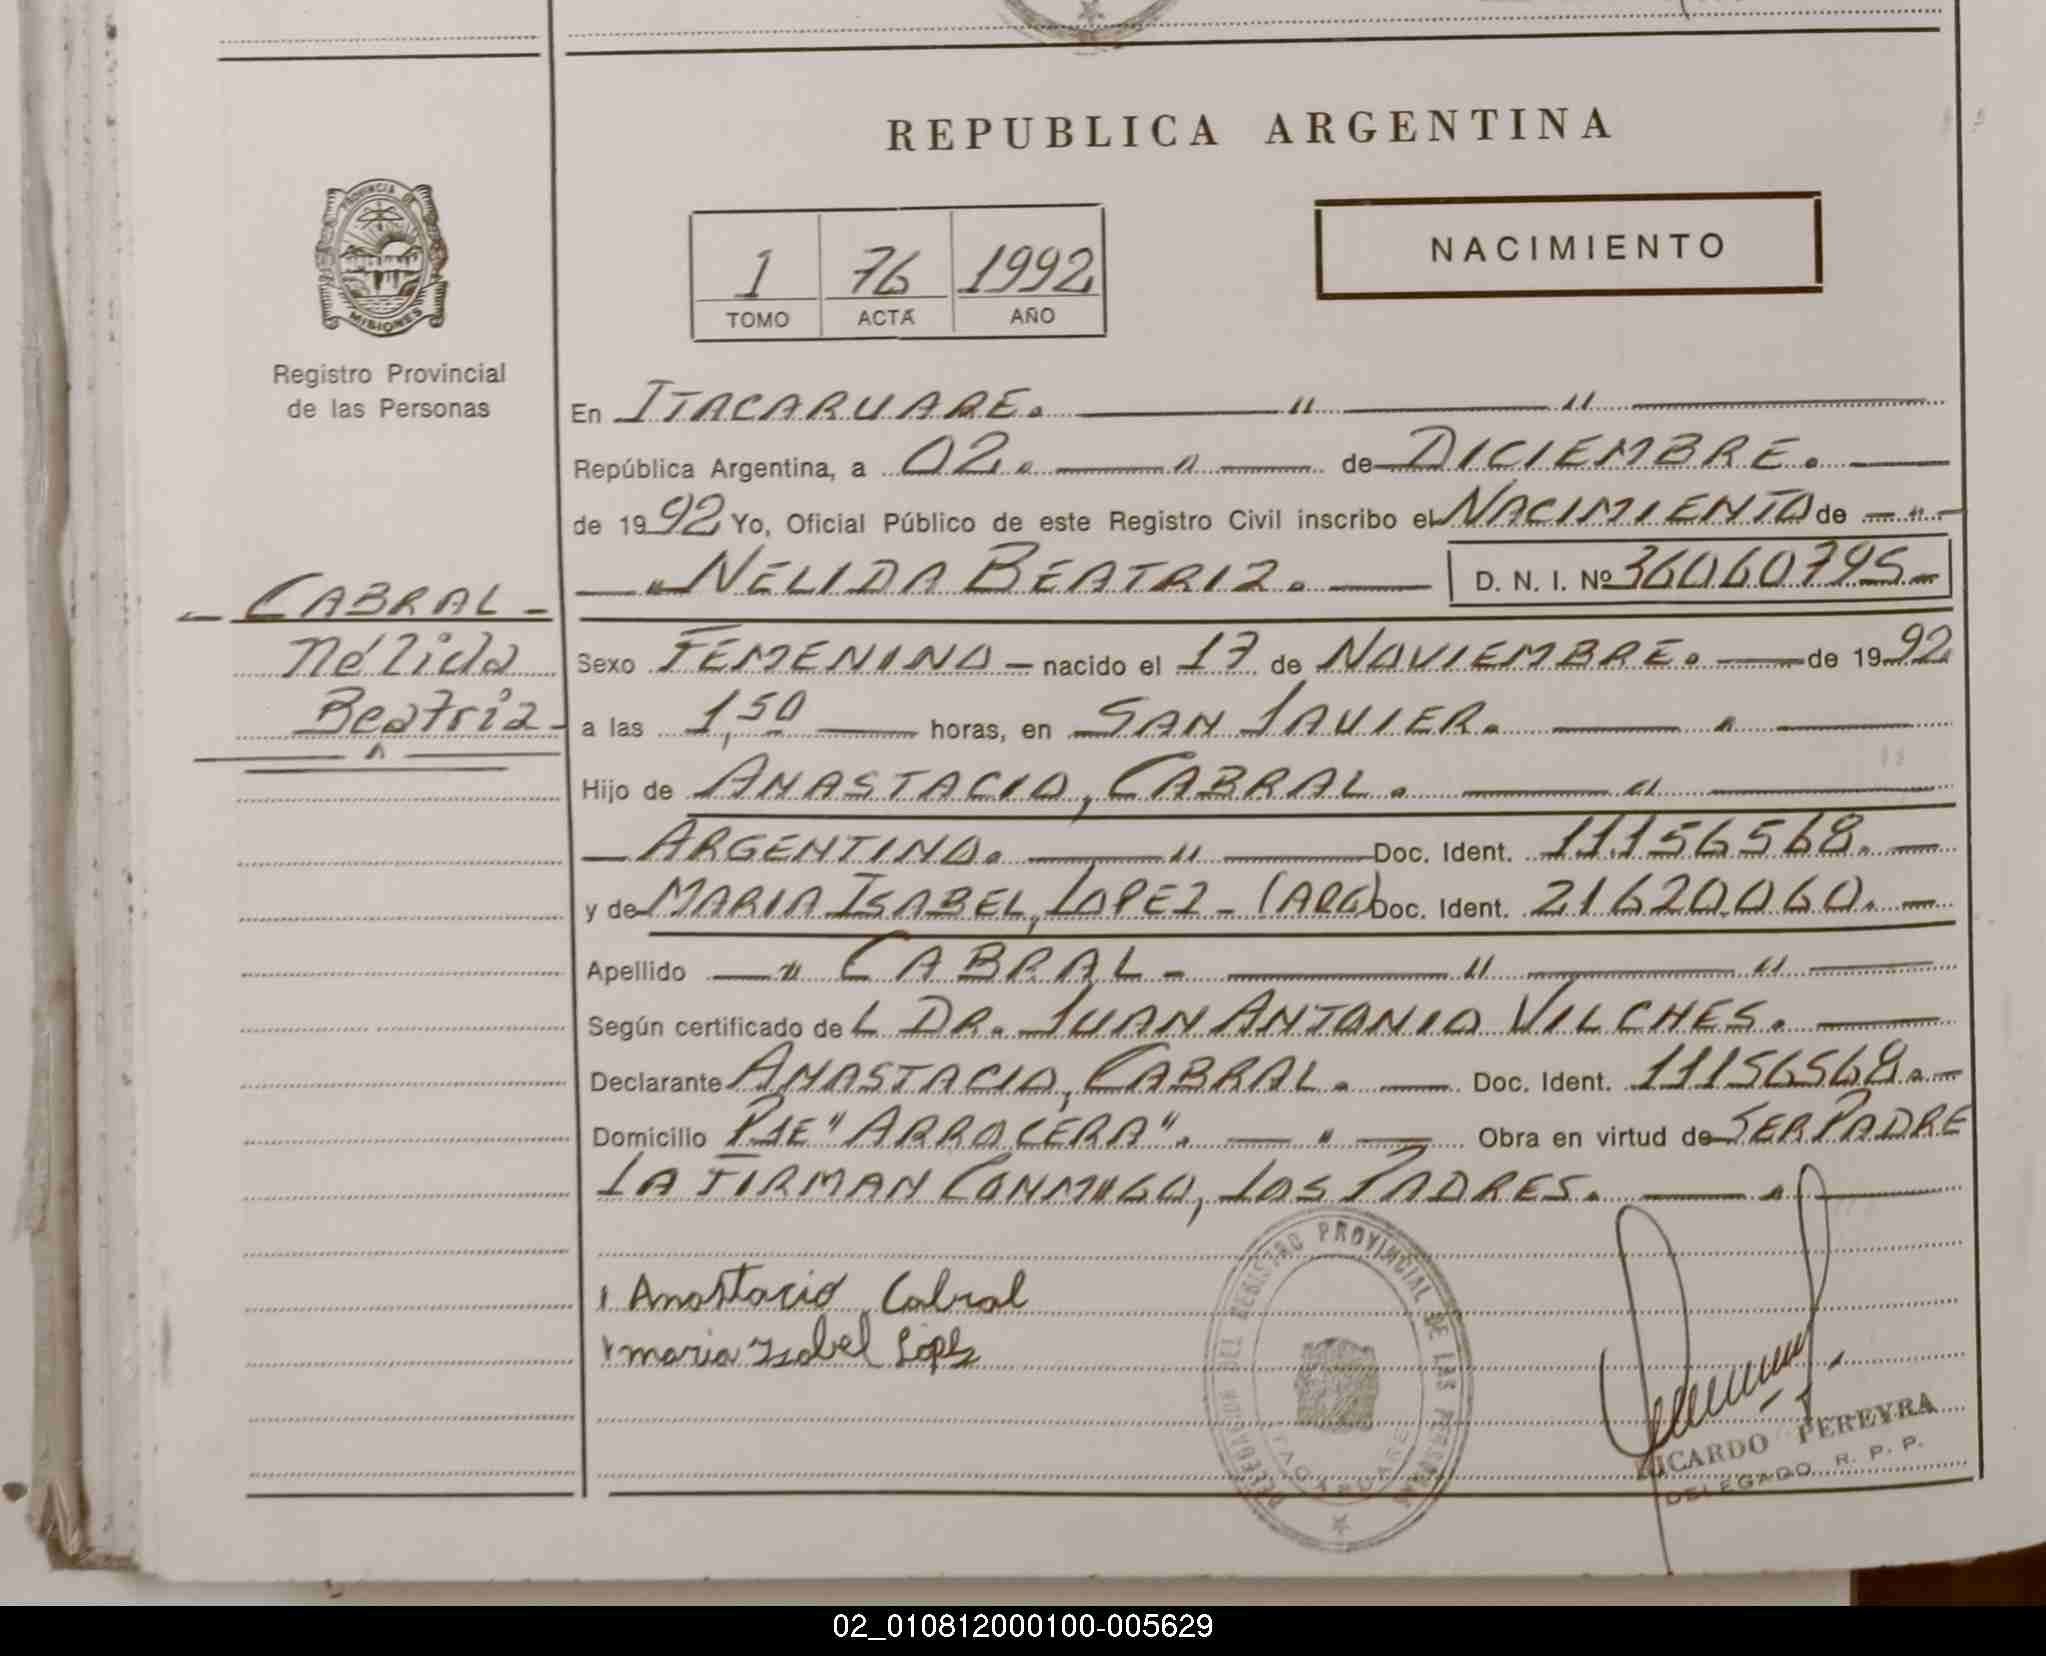 REPUBLICA ARGENTINA
PROVINCIA DE
MISIONES
Registro Provincial
de las Personas
NACIMIENTO
1 76 1992
TOMO ACTA AÑO
En ITACARUARE. — " — " —
República Argentina, a 02. — " — de DICIEMBRE. —
de 1992 Yo, Oficial Público de este Registro Civil inscribo el NACIMIENTO de — " —
— " NELIDA BEATRIZ. — D. N. I. Nº 36060795 —
— CABRAL —
Nélida
Beatriz —
Sexo FEMENINO — nacido el 17 de NOVIEMBRE. — de 1992
a las 1,50 — horas, en SAN JAVIER. — " —
Hijo de ANASTACIO, CABRAL. — " —
— ARGENTINO. — " — Doc. Ident. 11156568. —
y de MARIA ISABEL, LOPEZ - (ARG) Doc. Ident. 21620060. —
Apellido — " CABRAL - — " — " —
Según certificado del DR. JUAN ANTONIO VILCHES. —
Declarante ANASTACIO, CABRAL. — Doc. Ident. 11156568. —
Domicilio PJE "ARROCERA". — " — Obra en virtud de SER PADRE
LA FIRMAN CONMIGO, LOS PADRES. — " —
Anastacio Cabral
maria Isabel Lopez
DELEGACION DEL REGISTRO PROVINCIAL DE LAS PERSONAS
ITACARUARE
RICARDO PEREYRA
DELEGADO R. P. P.
02_010812000100-005629